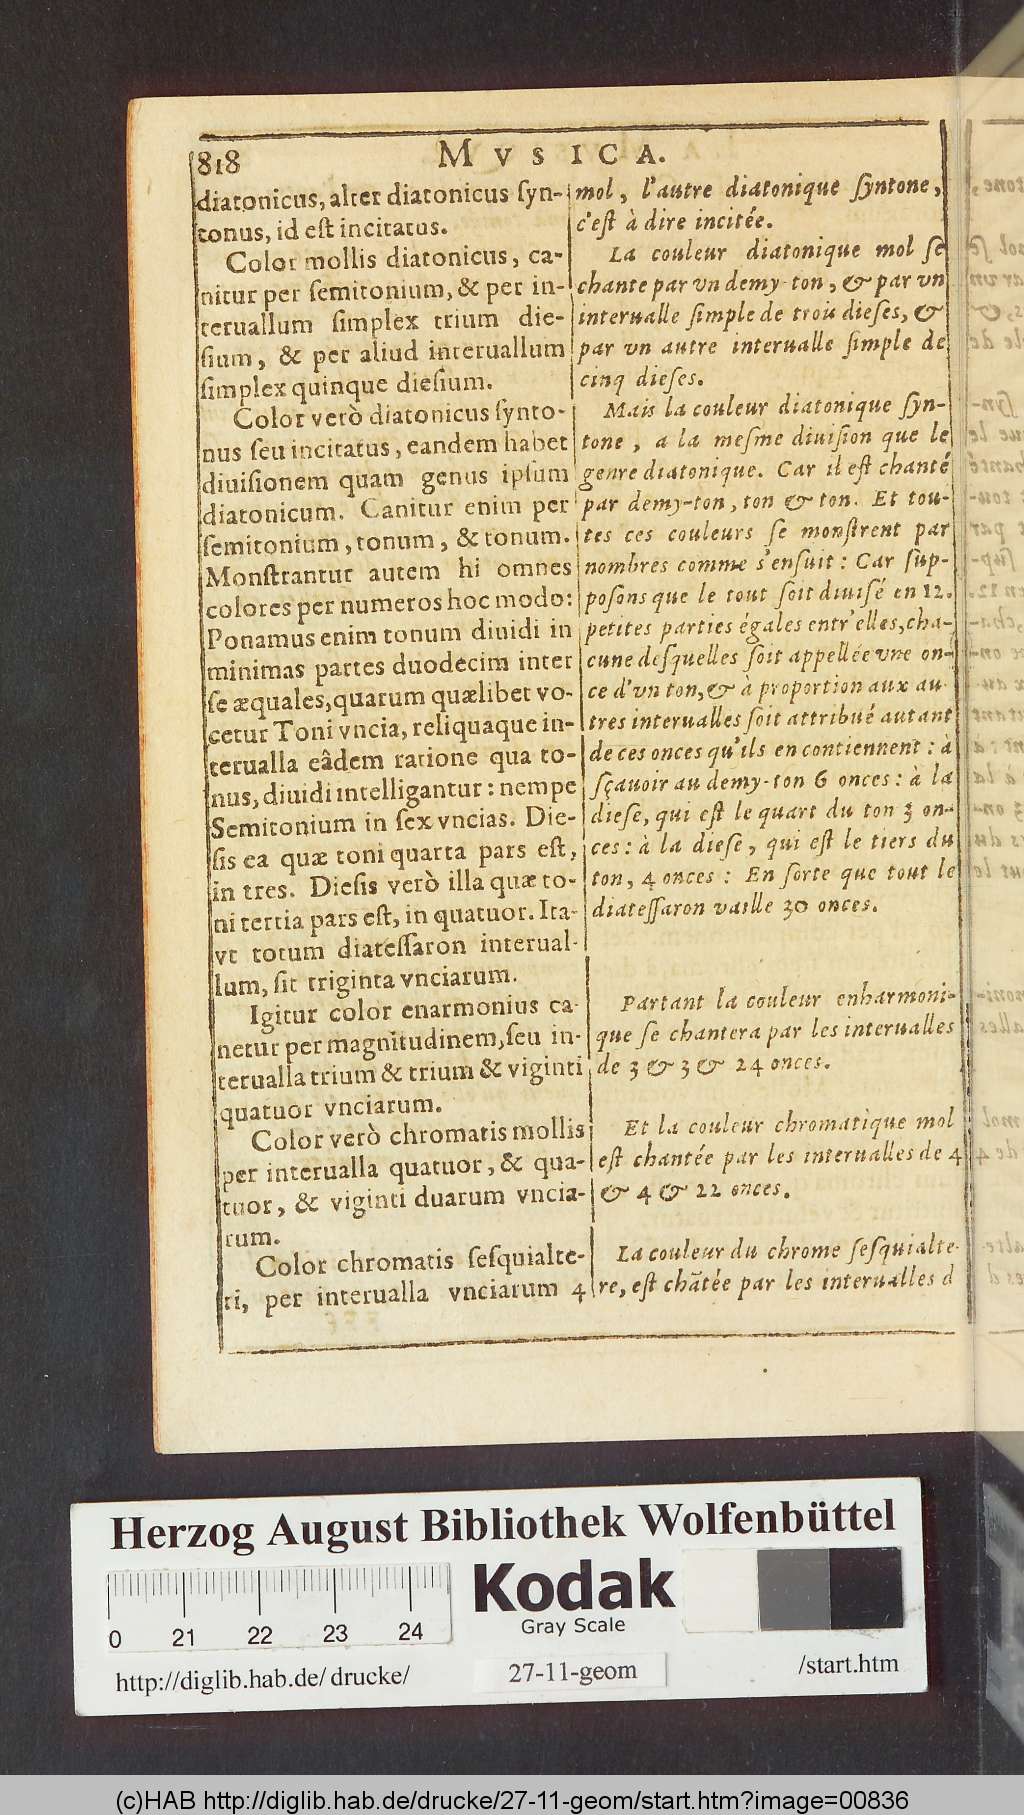 818
MVSICA.
diatonicus, alter diatonicus ſyn-
tonus, id eſt incitatus.
Color mollis diatonicus, ca-
nitur per ſemitonium, & per in-
teruallum ſimplex trium die-
ſium, & per aliud interuallum
ſimplex quinque dieſium.
Color verò diatonicus ſynto-
nus ſeu incitatus, eandem habet
diuiſionem quam genus ipſum
diatonicum. Canitur enim per
ſemitonium, tonum, & tonum.
Monſtrantur autem hi omnes
colores per numeros hoc modo:
Ponamus enim tonum diuidi in
minimas partes duodecim inter
ſe æquales, quarum quælibet vo-
cetur Toni vncia, reliquaque in-
terualla eâdem ratione qua to-
nus, diuidi intelligantur: nempe
Semitonium in ſex vncias. Die-
ſis ea quæ toni quarta pars eſt,
in tres. Dieſis verò illa quæ to-
ni tertia pars eſt, in quatuor. Ita-
vt totum diateſſaron interual-
lum, ſit triginta vnciarum.
Igitur color enarmonius ca-
netur per magnitudinem, ſeu in-
terualla trium & trium & viginti
quatuor vnciarum.
Color verò chromatis mollis
per interualla quatuor, & qua-
tuor, & viginti duarum vncia-
rum.
Color chromatis ſeſquialte-
ri, per interualla vnciarum 4
mol, l'autre diatonique ſyntone,
c'eſt à dire incitée.
La couleur diatonique mol ſe
chante par vn demy-ton, & par vn
interualle ſimple de trois dieſes, &
par vn autre interualle ſimple de
cinq dieſes.
Mais la couleur diatonique ſyn-
tone, a la meſme diuiſion que le
genre diatonique. Car il eſt chanté
par demy-ton, ton & ton. Et tou-
tes ces couleurs ſe monſtrent par
nombres comme s'enſuit: Car ſup-
poſons que le tout ſoit diuiſé en 12.
petites parties égales entr'elles, cha-
cune deſquelles ſoit appellée vne on-
ce d'vn ton, & à proportion aux au-
tres interualles ſoit attribué autant
de ces onces qu'ils en contiennent: à
ſçauoir au demy-ton 6 onces: à la
dieſe, qui eſt le quart du ton 3 on-
ces: à la dieſe, qui eſt le tiers du
ton, 4 onces: En ſorte que tout le
diateſſaron vaille 30 onces.
Partant la couleur enharmoni-
que ſe chantera par les interualles
de 3 & 3 & 24 onces.
Et la couleur chromatique mol
eſt chantée par les interualles de 4
& 4 & 22 onces.
La couleur du chrome ſeſquialte-
re, eſt chãtée par les interualles d
Herzog August Bibliothek Wolfenbüttel
0 21 22 23 24
Kodak
Gray Scale
http://diglib.hab.de/ drucke/
27-11-geom
/start.htm
(c)HAB http://diglib.hab.de/drucke/27-11-geom/start.htm?image=00836